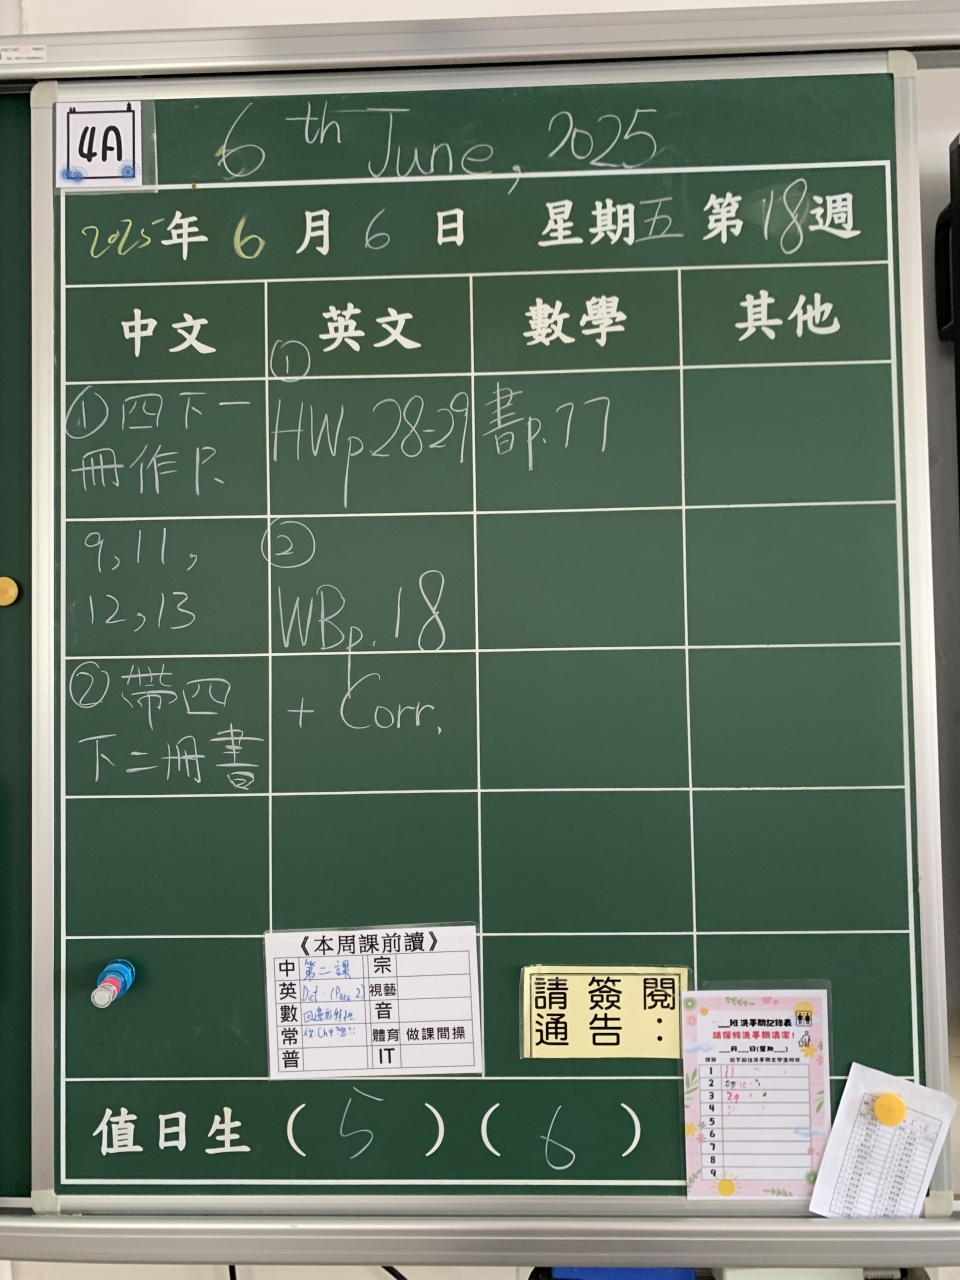 4A
6th June, 2025
2025年6月6日 星期五 第18週
中文 英文 數學 其他
①四下一
冊作P.
9,11,
12,13
②帶四
下二冊書
①
HWp.28-29
②
WBp.18
+ Corr.
書p.77
《本周課前讀》
中 第二課 宗
英 視藝
數 音
常 體育 做課間操
普 IT
請簽閱
通告：
班洗手間記錄表
請保持洗手間清潔！
月 日(星期 )
1
2
3
4
5
6
7
8
9
值日生（5）（6）